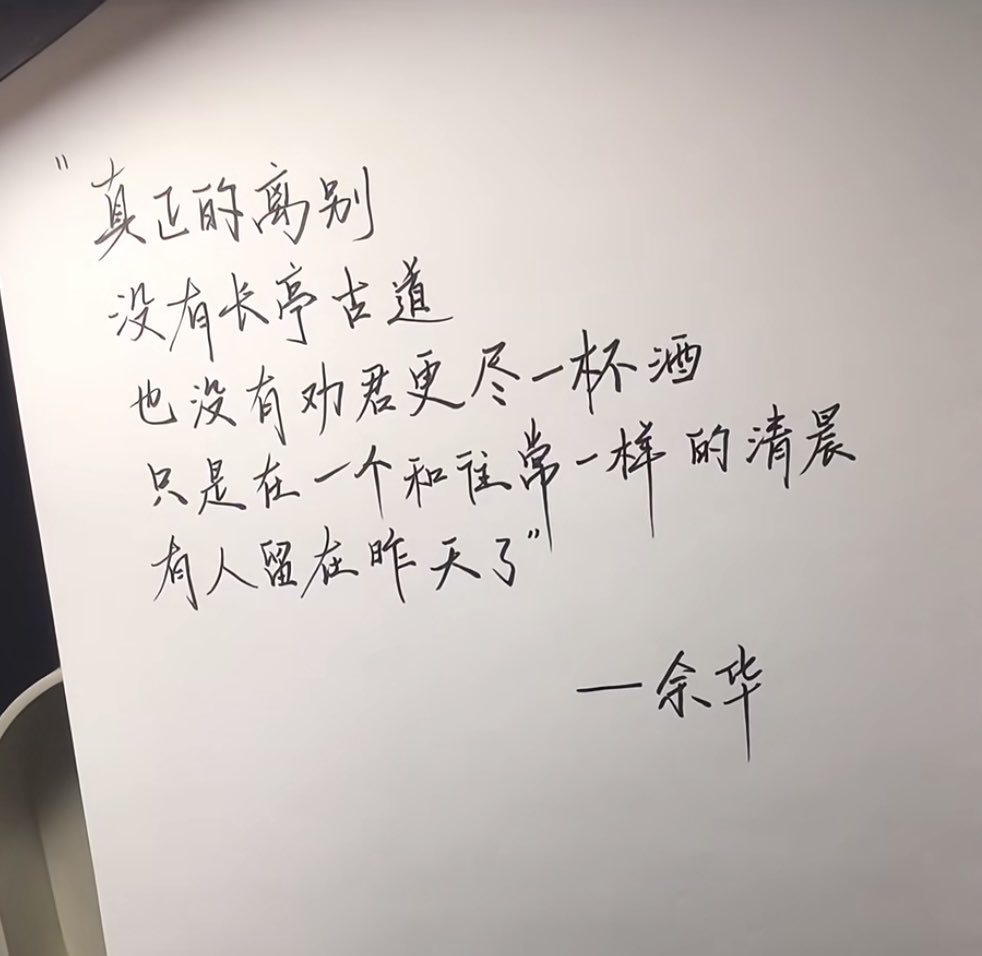 "真正的离别
没有长亭古道
也没有劝君更尽一杯酒
只是在一个和往常一样的清晨
有人留在昨天了"
—余华